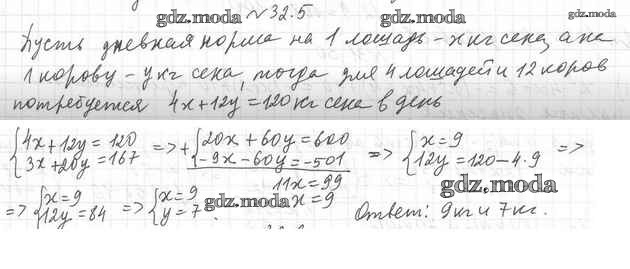 gdz.moda №32.5 gdz.moda gdz.moda
Пусть дневная норма на 1 лошадь - x кг сена, а на
1 корову - y кг сена, тогда для 4 лошадей и 12 коров
потребуется 4x+12y=120 кг сена в день
{4x+12y=120 => +{20x+60y=600 => {x=9 =>
3x+20y=167 -9x-60y=-501 12y=120-4·9
11x=99 gdz.moda
=> {x=9 => {x=9 gdz.moda x=9
12y=84 y=7. Ответ: 9 кг и 7 кг.